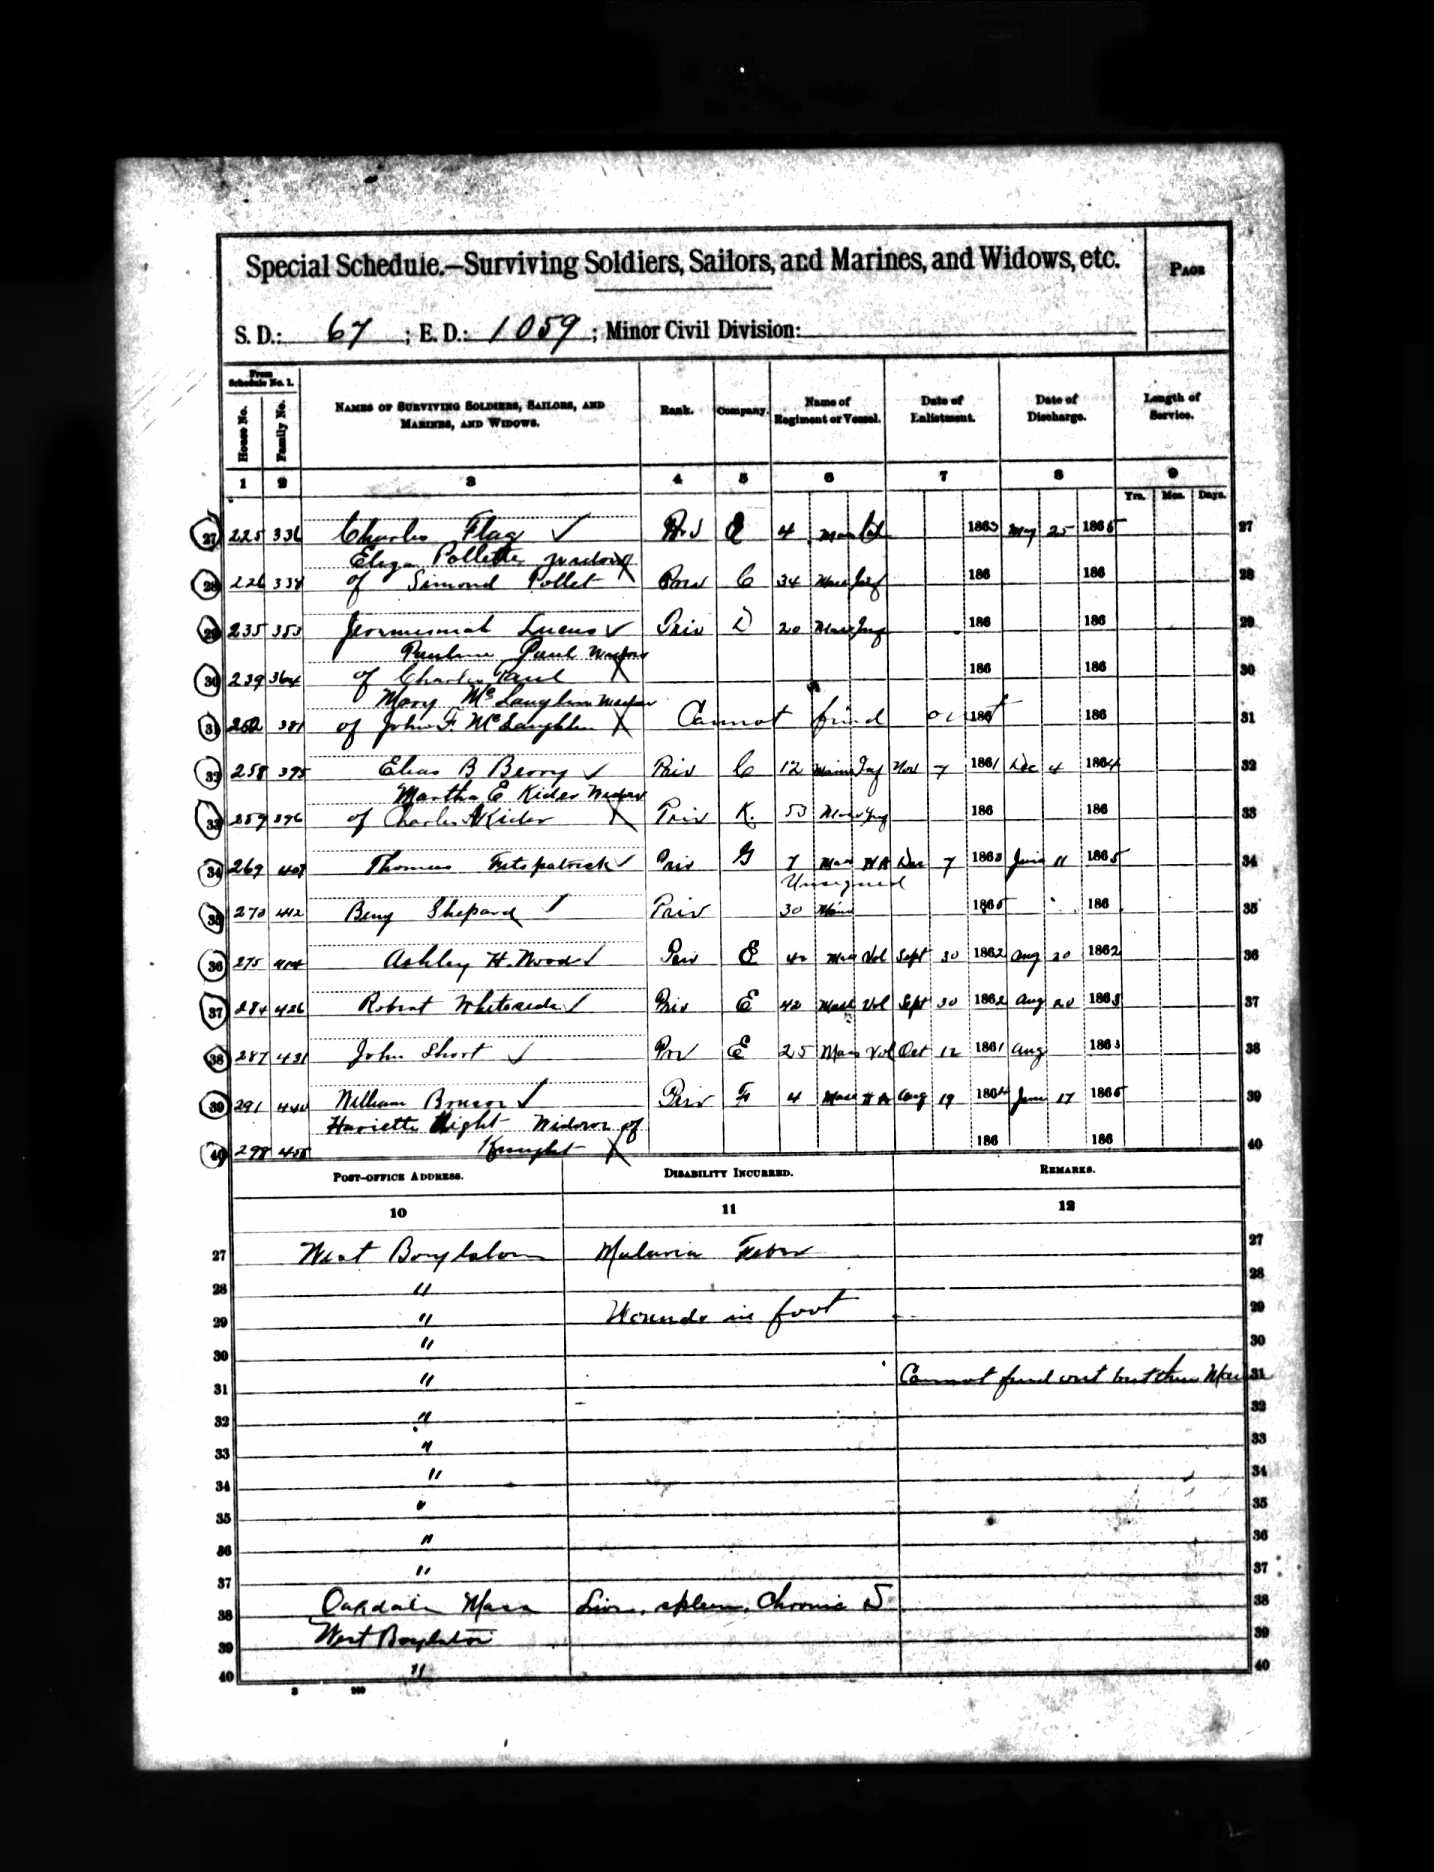 Special Schedule.—Surviving Soldiers, Sailors, and Marines, and Widows, etc.
PAGE
S. D.: 67 ; E. D.: 1059 ; Minor Civil Division:
From Schedule No. 1.
House No. Family No. NAMES OF SURVIVING SOLDIERS, SAILORS, AND MARINES, AND WIDOWS. Rank. Company. Name of Regiment or Vessel. Date of Enlistment. Date of Discharge. Length of Service.
1 2 3 4 5 6 7 8 9
Yrs. Mos. Days.
27 225 336 Charles Flag ✓ 4 Mass 1863 May 25 1865 27
Eliza Pollette widow
28 226 338 of Simond Pollet X Priv C 34 Mass Inf 186 186 28
29 235 353 Lucus ✓ Priv D 20 Mass Inf 186 186 29
Pauline Paul Widow
30 239 364 of Charles Paul X 186 186 30
Mary McLaughlin Widow
31 252 381 of John F. McLaughlin X Cannot find out 186 186 31
32 258 395 Elias B Berry ✓ Priv C 12 Maine Inf Nov 7 1861 Dec 4 1864 32
Martha E Kider Widow
33 259 396 of Charles A Kider X Priv K. 53 Mass Inf 186 186 33
34 269 Thomas Fitspatrick ✓ Priv G 7 Mass H A Dec 7 1863 June 11 1865 34
Unsigned
35 270 412 Benj Shepard ✓ Priv 30 Maine 1865 186 35
36 275 414 Ashley H. Wood ✓ Priv E 42 Mass Vol Sept 30 1862 Aug 20 1862 36
37 284 426 Robert Whiteside ✓ Priv E 42 Mass Vol Sept 30 1862 Aug 20 1863 37
38 287 431 John Short ✓ Priv E 25 Mass Vol Oct 12 1861 Aug 1863 38
39 291 440 William Bruson ✓ Priv F 4 Mass H A Aug 19 1864 June 17 1865 39
Hariette Night Widow of
40 298 Knight X 186 186 40
POST-OFFICE ADDRESS. DISABILITY INCURRED. REMARKS.
10 11 12
27 West Boylston Malaria Fever 27
28 " 28
29 " Wounds in foot 29
30 " 30
31 " Cannot find out but than 31
32 " 32
33 " 33
34 " 34
35 " 35
36 " 36
37 " 37
38 Oakdale Mass Liver, spleen, Chronic D 38
39 West Boylston 39
40 " 40